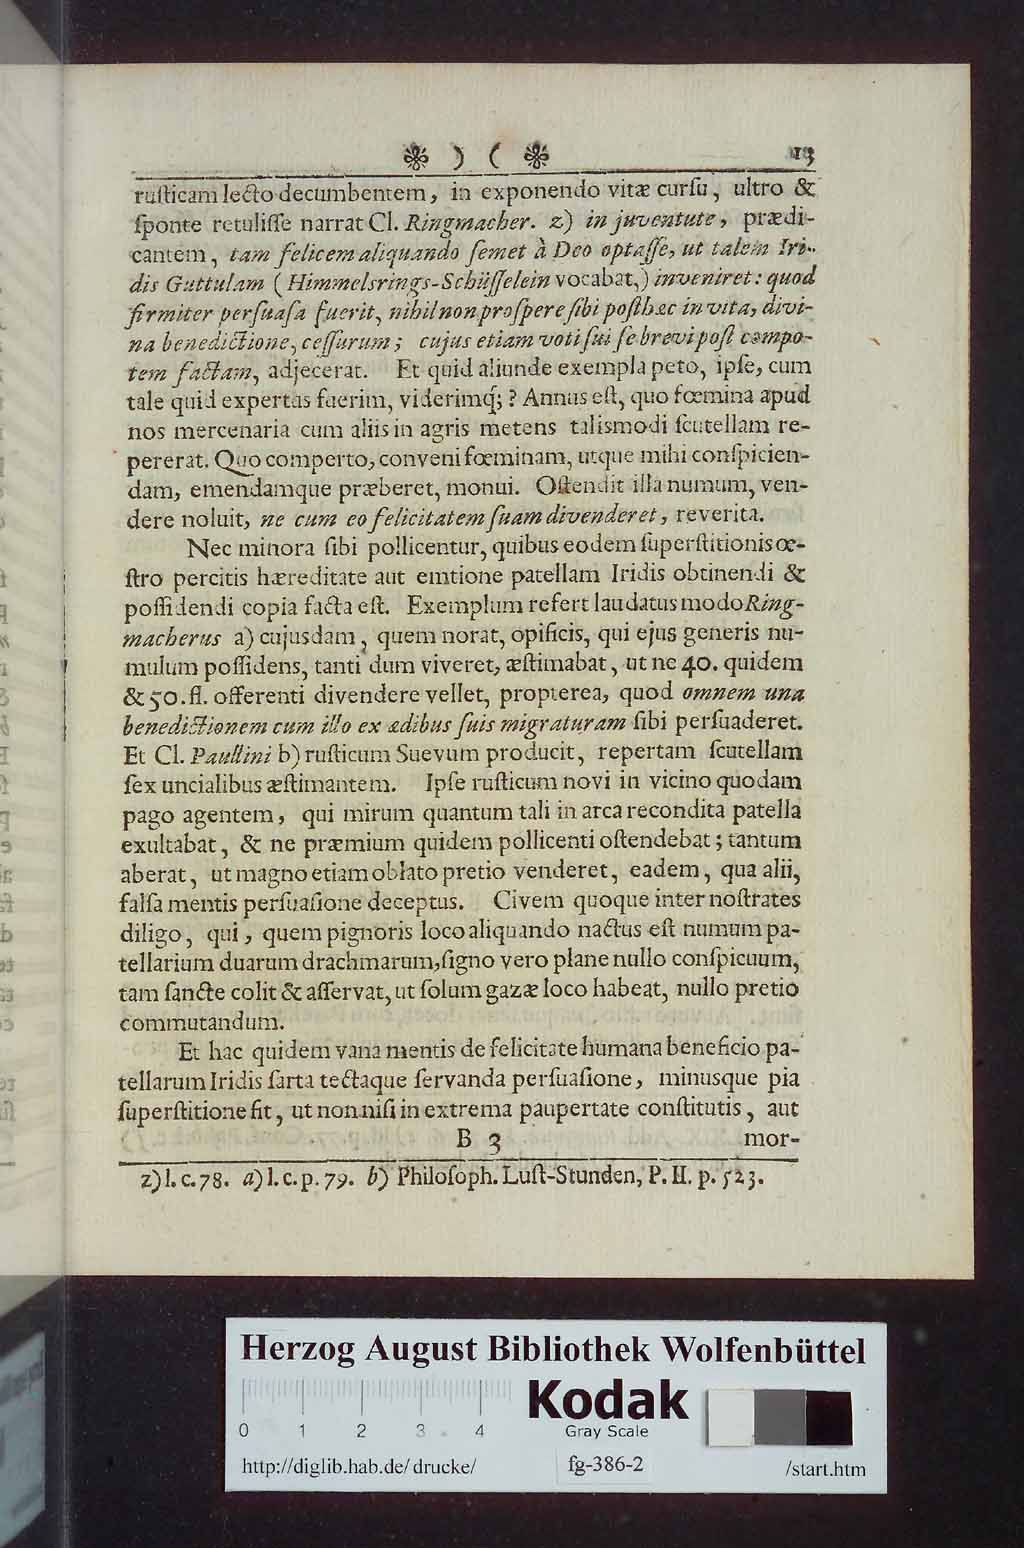 ❀ ) ( ❀ 13
ruſticam lecto decumbentem, in exponendo vitæ curſu, ultro &
ſponte retuliſſe narrat Cl. Ringmacher. z) in juventute, prædi-
cantem, tam felicem aliquando ſemet à Deo optaſſe, ut talem Iri-
dis Guttulam (Himmelsrings-Schüſſelein vocabat,) inveniret: quod
firmiter perſuaſa fuerit, nihil non proſpere ſibi poſthac in vita, divi-
na benedictione, ceſſurum; cujus etiam voti ſui ſe brevi poſt compo-
tem factam, adjecerat. Et quid aliunde exempla peto, ipſe, cum
tale quid expertus fuerim, viderimq́;? Annus eſt, quo fœmina apud
nos mercenaria cum aliis in agris metens talismodi ſcutellam re-
pererat. Quo comperto, conveni fœminam, utque mihi conſpicien-
dam, emendamque præberet, monui. Oſtendit illa numum, ven-
dere noluit, ne cum eo felicitatem ſuam divenderet, reverita.
Nec minora ſibi pollicentur, quibus eodem ſuperſtitionis œ-
ſtro percitis hæreditate aut emtione patellam Iridis obtinendi &
poſſidendi copia facta eſt. Exemplum refert laudatus modo Ring-
macherus a) cujusdam, quem norat, opificis, qui ejus generis nu-
mulum poſſidens, tanti dum viveret, æſtimabat, ut ne 40. quidem
& 50. fl. offerenti divendere vellet, propterea, quod omnem una
benedictionem cum illo ex ædibus ſuis migraturam ſibi perſuaderet.
Et Cl. Paullini b) ruſticum Suevum producit, repertam ſcutellam
ſex uncialibus æſtimantem. Ipſe ruſticum novi in vicino quodam
pago agentem, qui mirum quantum tali in arca recondita patella
exultabat, & ne præmium quidem pollicenti oſtendebat; tantum
aberat, ut magno etiam oblato pretio venderet, eadem, qua alii,
falſa mentis perſuaſione deceptus. Civem quoque inter noſtrates
diligo, qui, quem pignoris loco aliquando nactus eſt numum pa-
tellarium duarum drachmarum, ſigno vero plane nullo conſpicuum,
tam ſancte colit & aſſervat, ut ſolum gazæ loco habeat, nullo pretio
commutandum.
Et hac quidem vana mentis de felicitate humana beneficio pa-
tellarum Iridis ſarta tectaque ſervanda perſuaſione, minusque pia
ſuperſtitione fit, ut non niſi in extrema paupertate conſtitutis, aut
B 3 mor-
z) l. c. 78. a) l. c. p. 79. b) Philoſoph. Luſt-Stunden, P. II. p. 523.
Herzog August Bibliothek Wolfenbüttel
0 1 2 3 4
Kodak
Gray Scale
http://diglib.hab.de/drucke/ fg-386-2 /start.htm